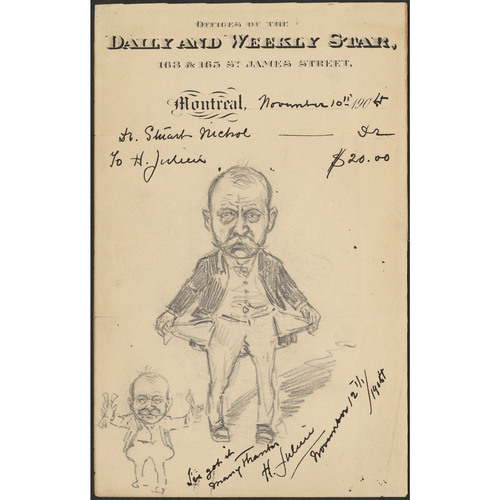 OFFICES OF THE
DAILY AND WEEKLY STAR,
163 & 165 ST. JAMES STREET.
Montreal, November 10th 1904
Dr. Stuart Nichol —— Dr
To H. Julien $20.00
I've got it
Many Thanks
H. Julien
November 12th/1904